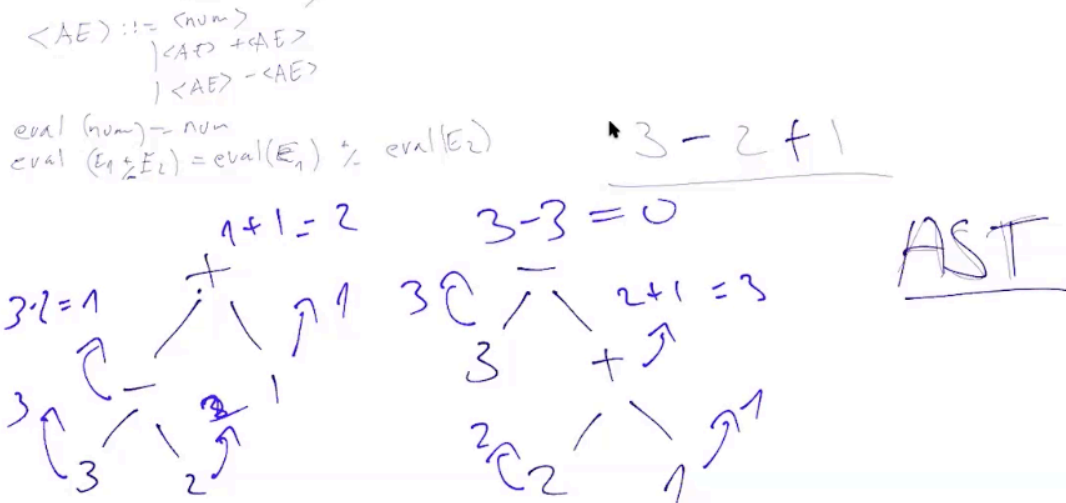 <AE> ::= <num>
| <AE> + <AE>
| <AE> - <AE>
eval (num) = num
eval (E1 ± E2) = eval(E1) ± eval(E2)
3 - 2 + 1
AST
1+1=2
+
3-2=1
1
-
1
3
2
3
2
3-3=0
-
3
2+1=3
3
+
2
1
2
1